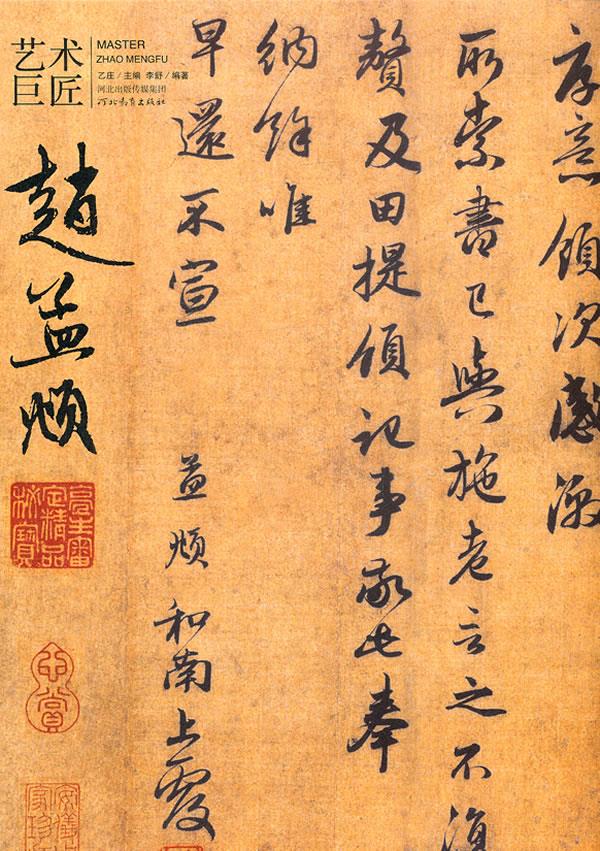 艺术巨匠
MASTER
ZHAO MENGFU
乙庄/主编 李舒/编著
河北出版传媒集团
河北教育出版社
趙孟頫
厚意領次感激
所索書已與施老言之不須
贅及田提領記事敬此奉
納餘唯
早還不宣
孟頫和南上覆